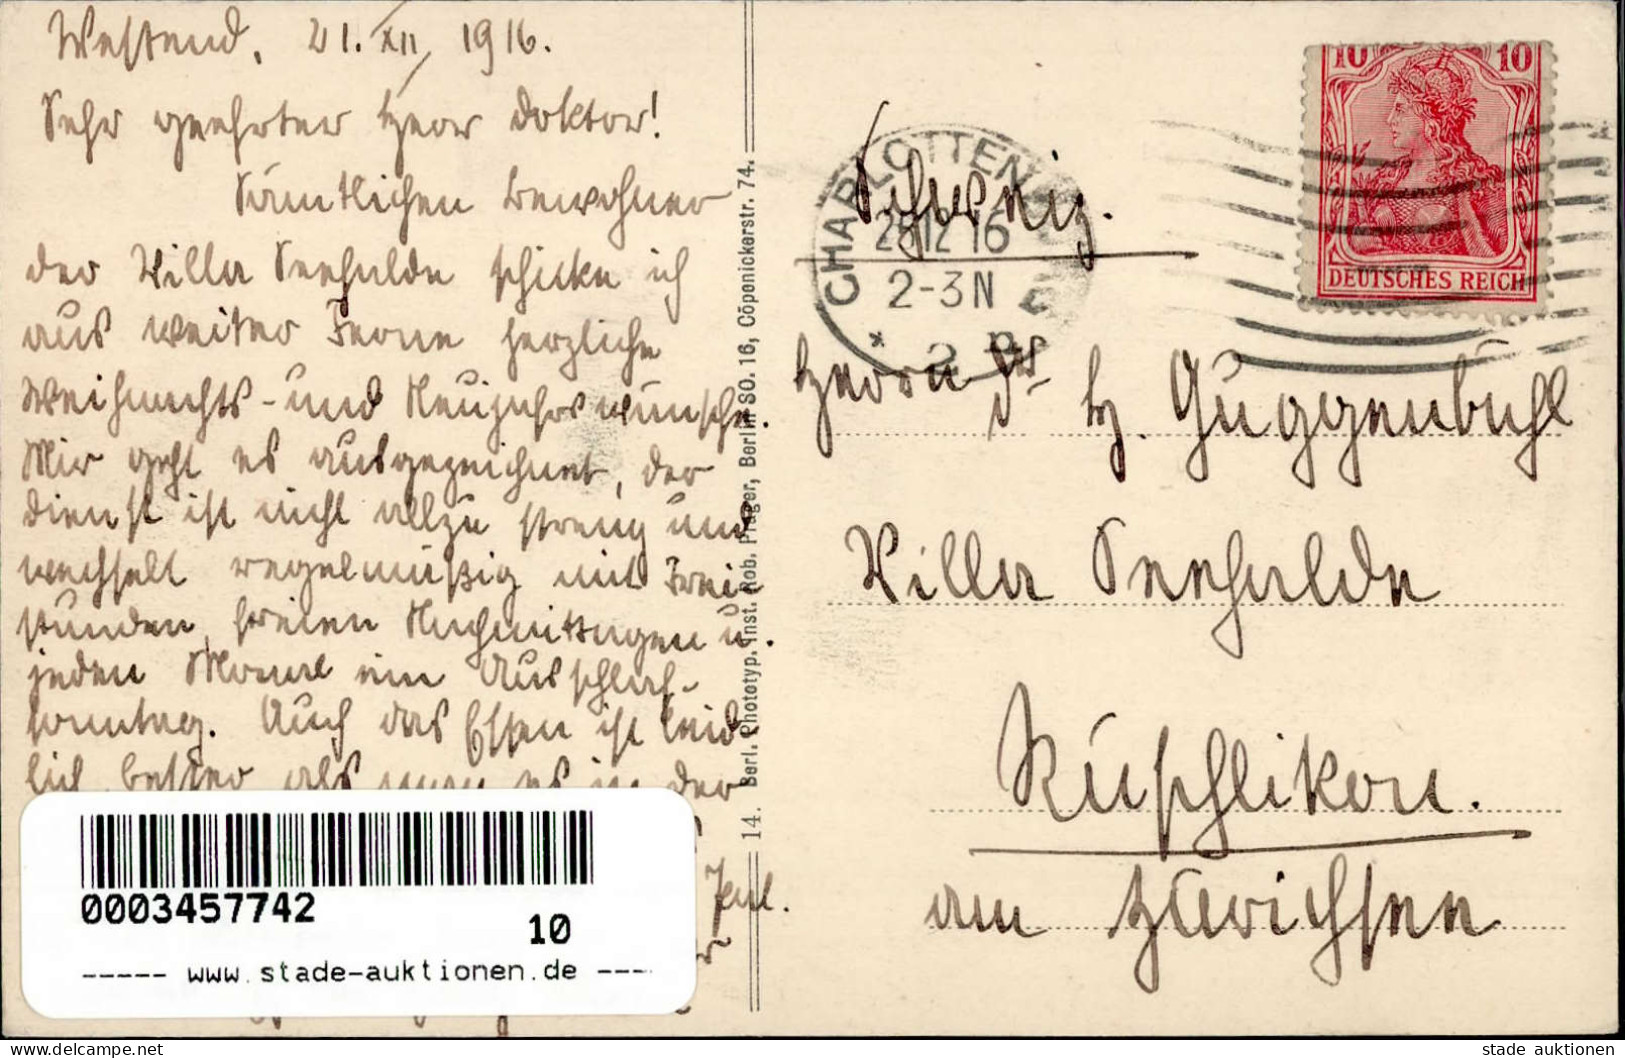 Westend, 21. XII, 1916.
Sehr geehrter Herr Doktor!
Sämtlichen Bewohner
der Villa Seehalde schicke ich
aus weiter Ferne herzliche
Weihnachts- und Neujahrswünsche.
Mir geht es ausgezeichnet, der
Dienst ist nicht allzu streng und
wechselt regelmäßig mit Frei
stunden, freien Nachmittagen u.
jeden Monat ein Ausschlaf-
sonntag. Auch das Essen ist leid
lich besser als man es in der
14. Berl. Phototyp. Inst. Rob. Prager, Berlin SO. 16, Cöpenickerstr. 74.
10 10
DEUTSCHES REICH
CHARLOTTEN
12 16
2-3 N
* 2
Schweiz.
Herrn Dr H. Guggenbühl
Villa Seehalde
Rüschlikon.
am Zürichsee
0003457742
10
----- www.stade-auktionen.de ----
delcampe.net
stade auktionen